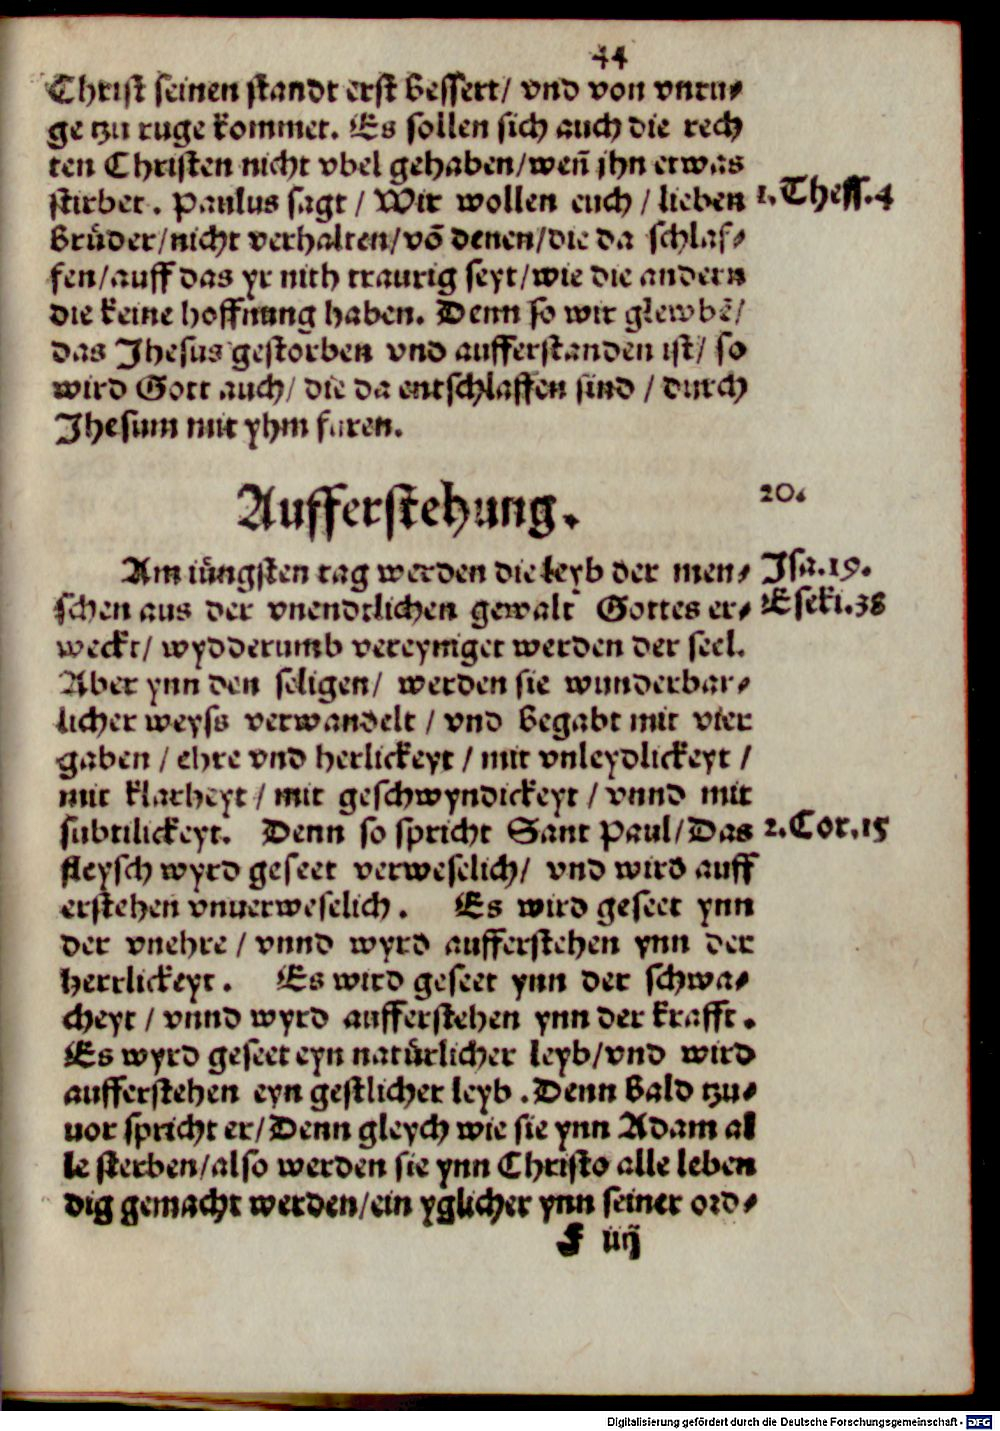 44
Christ seinen standt erst bessert/ vnd von vnru⸗
ge tzu ruge kommet. Es sollen sich auch die rech
ten Christen nicht vbel gehaben/wen̄ jhn etwas
stirbet. Paulus sagt / Wir wollen euch / lieben
1. Thess. 4
brůder/nicht verhalten/vō denen/die da schlaf⸗
fen/auff das yr nith traurig seyt/wie die andern
die keine hoffnung haben. Denn so wir glewbē/
das Jhesus gestorben vnd aufferstanden ist/ so
wird Gott auch/ die da entschlaffen sind / durch
Jhesum mit yhm furen.
Aufferstehung.
20.
Am iůngsten tag werden die leyb der men⸗
Jsa. 19.
schen aus der vnendtlichen gewalt Gottes er⸗
Eseki. 38
weckt/ wydderumb vereyniget werden der seel.
Aber ynn den seligen/ werden sie wunderbar⸗
licher weyss verwandelt / vnd begabt mit vier
gaben / ehre vnd herlickeyt / mit vnleydlickeyt /
mit klarheyt / mit geschwyndickeyt / vnnd mit
subtilickeyt. Denn so spricht Sant Paul/Das
2. Cor. 15
fleysch wyrd geseet verweselich/ vnd wird auff
erstehen vnuerweselich. Es wird geseet ynn
der vnehre / vnnd wyrd aufferstehen ynn der
herrlickeyt. Es wird geseet ynn der schwa⸗
cheyt / vnnd wyrd aufferstehen ynn der krafft.
Es wyrd geseet eyn natůrlicher leyb/vnd wird
aufferstehen eyn gestlicher leyb. Denn bald tzu⸗
uor spricht er/Denn gleych wie sie ynn Adam al
le sterben/also werden sie ynn Christo alle leben
dig gemacht werden/ein yglicher ynn seiner ord⸗
F iiij
Digitalisierung gefördert durch die Deutsche Forschungsgemeinschaft - DFG